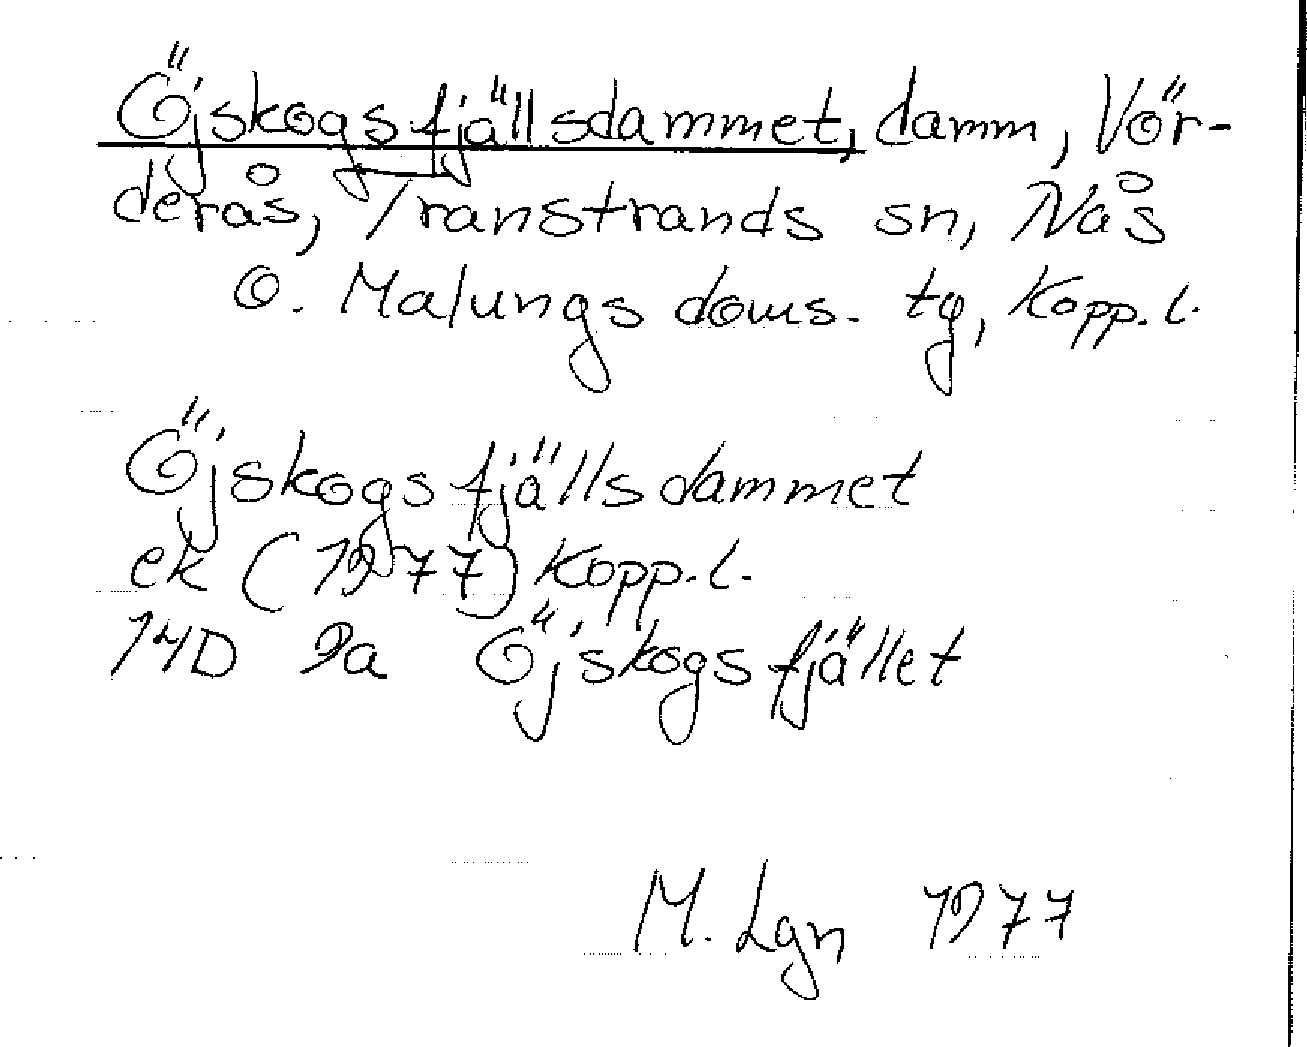 Öjskogsfjällsdammet, damm, Vör-
derås, Transtrands sn, Nås
o. Malungs doms. tg, Kopp. l.
Öjskogsfjällsdammet
ek (1977) Kopp. l.
14D 9a Öjskogsfjället
M. Lgn 1977